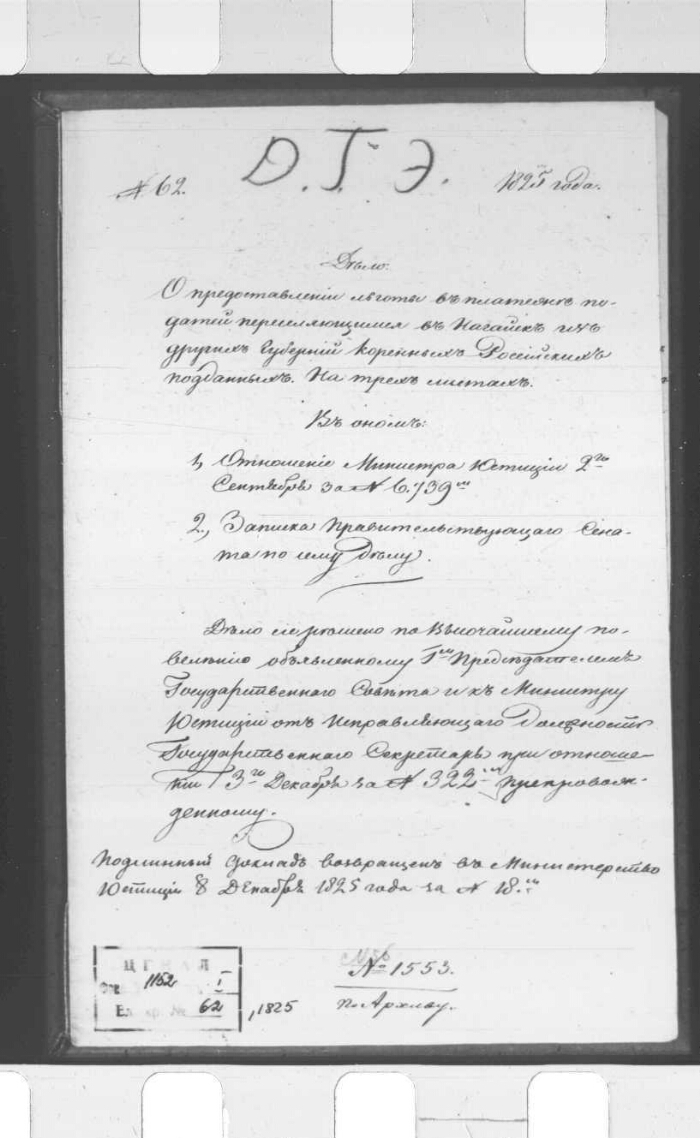 № 62.
Д. Г. Э.
1825 года.
Дѣло:
О предоставленіи льготы въ платежѣ по-
датей переселяющимся въ Нагайскъ изъ
другихъ Губерній кореннымъ Россійскимъ
подданнымъ. На трехъ листахъ.
Въ ономъ:
1, Отношеніе Министра Юстиціи 2го
Сентября за № 6.739м
2, Записка Правительствующаго Сена-
та по сему дѣлу.
Дѣло сіе рѣшено по Высочайшему по-
велѣнію объявленному Гм Предсѣдателемъ
Государственнаго Совѣта и къ Министру
Юстиціи отъ Исправляющаго должность
Государственнаго Секретаря при отноше-
ніи 3го Декабря за № 322м препровож-
денному.
Подлинный докладъ возвращенъ въ Министерство
Юстиціи 8 Декабря 1825 года за № 18м
№ 1553.
по Архиву.
1152
I
62
, 1825